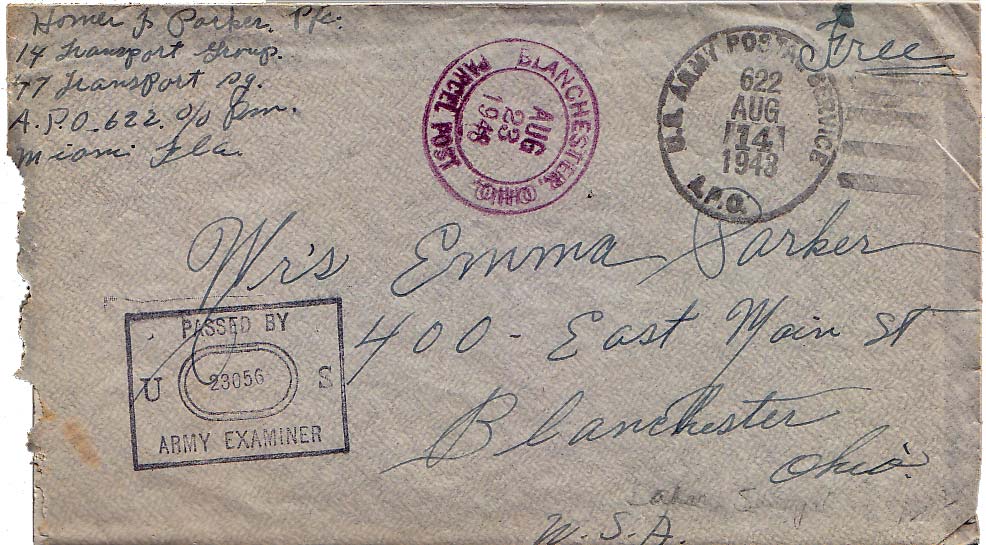 Homer J Parker. Pfc.
14 Transport Group.
77 Transport sq.
A.P.O. 622. c/o Pm.
Miami Fla.
BLANCHESTER, OHIO.
AUG
23
1943
PARCEL POST
U.S. ARMY POSTAL SERVICE
622
AUG
14
1943
A.P.O.
Free
Mr's Emma Parker
400 - East Main St
Blanchester
Ohio.
U.S.A.
PASSED BY
U 23056 S
ARMY EXAMINER